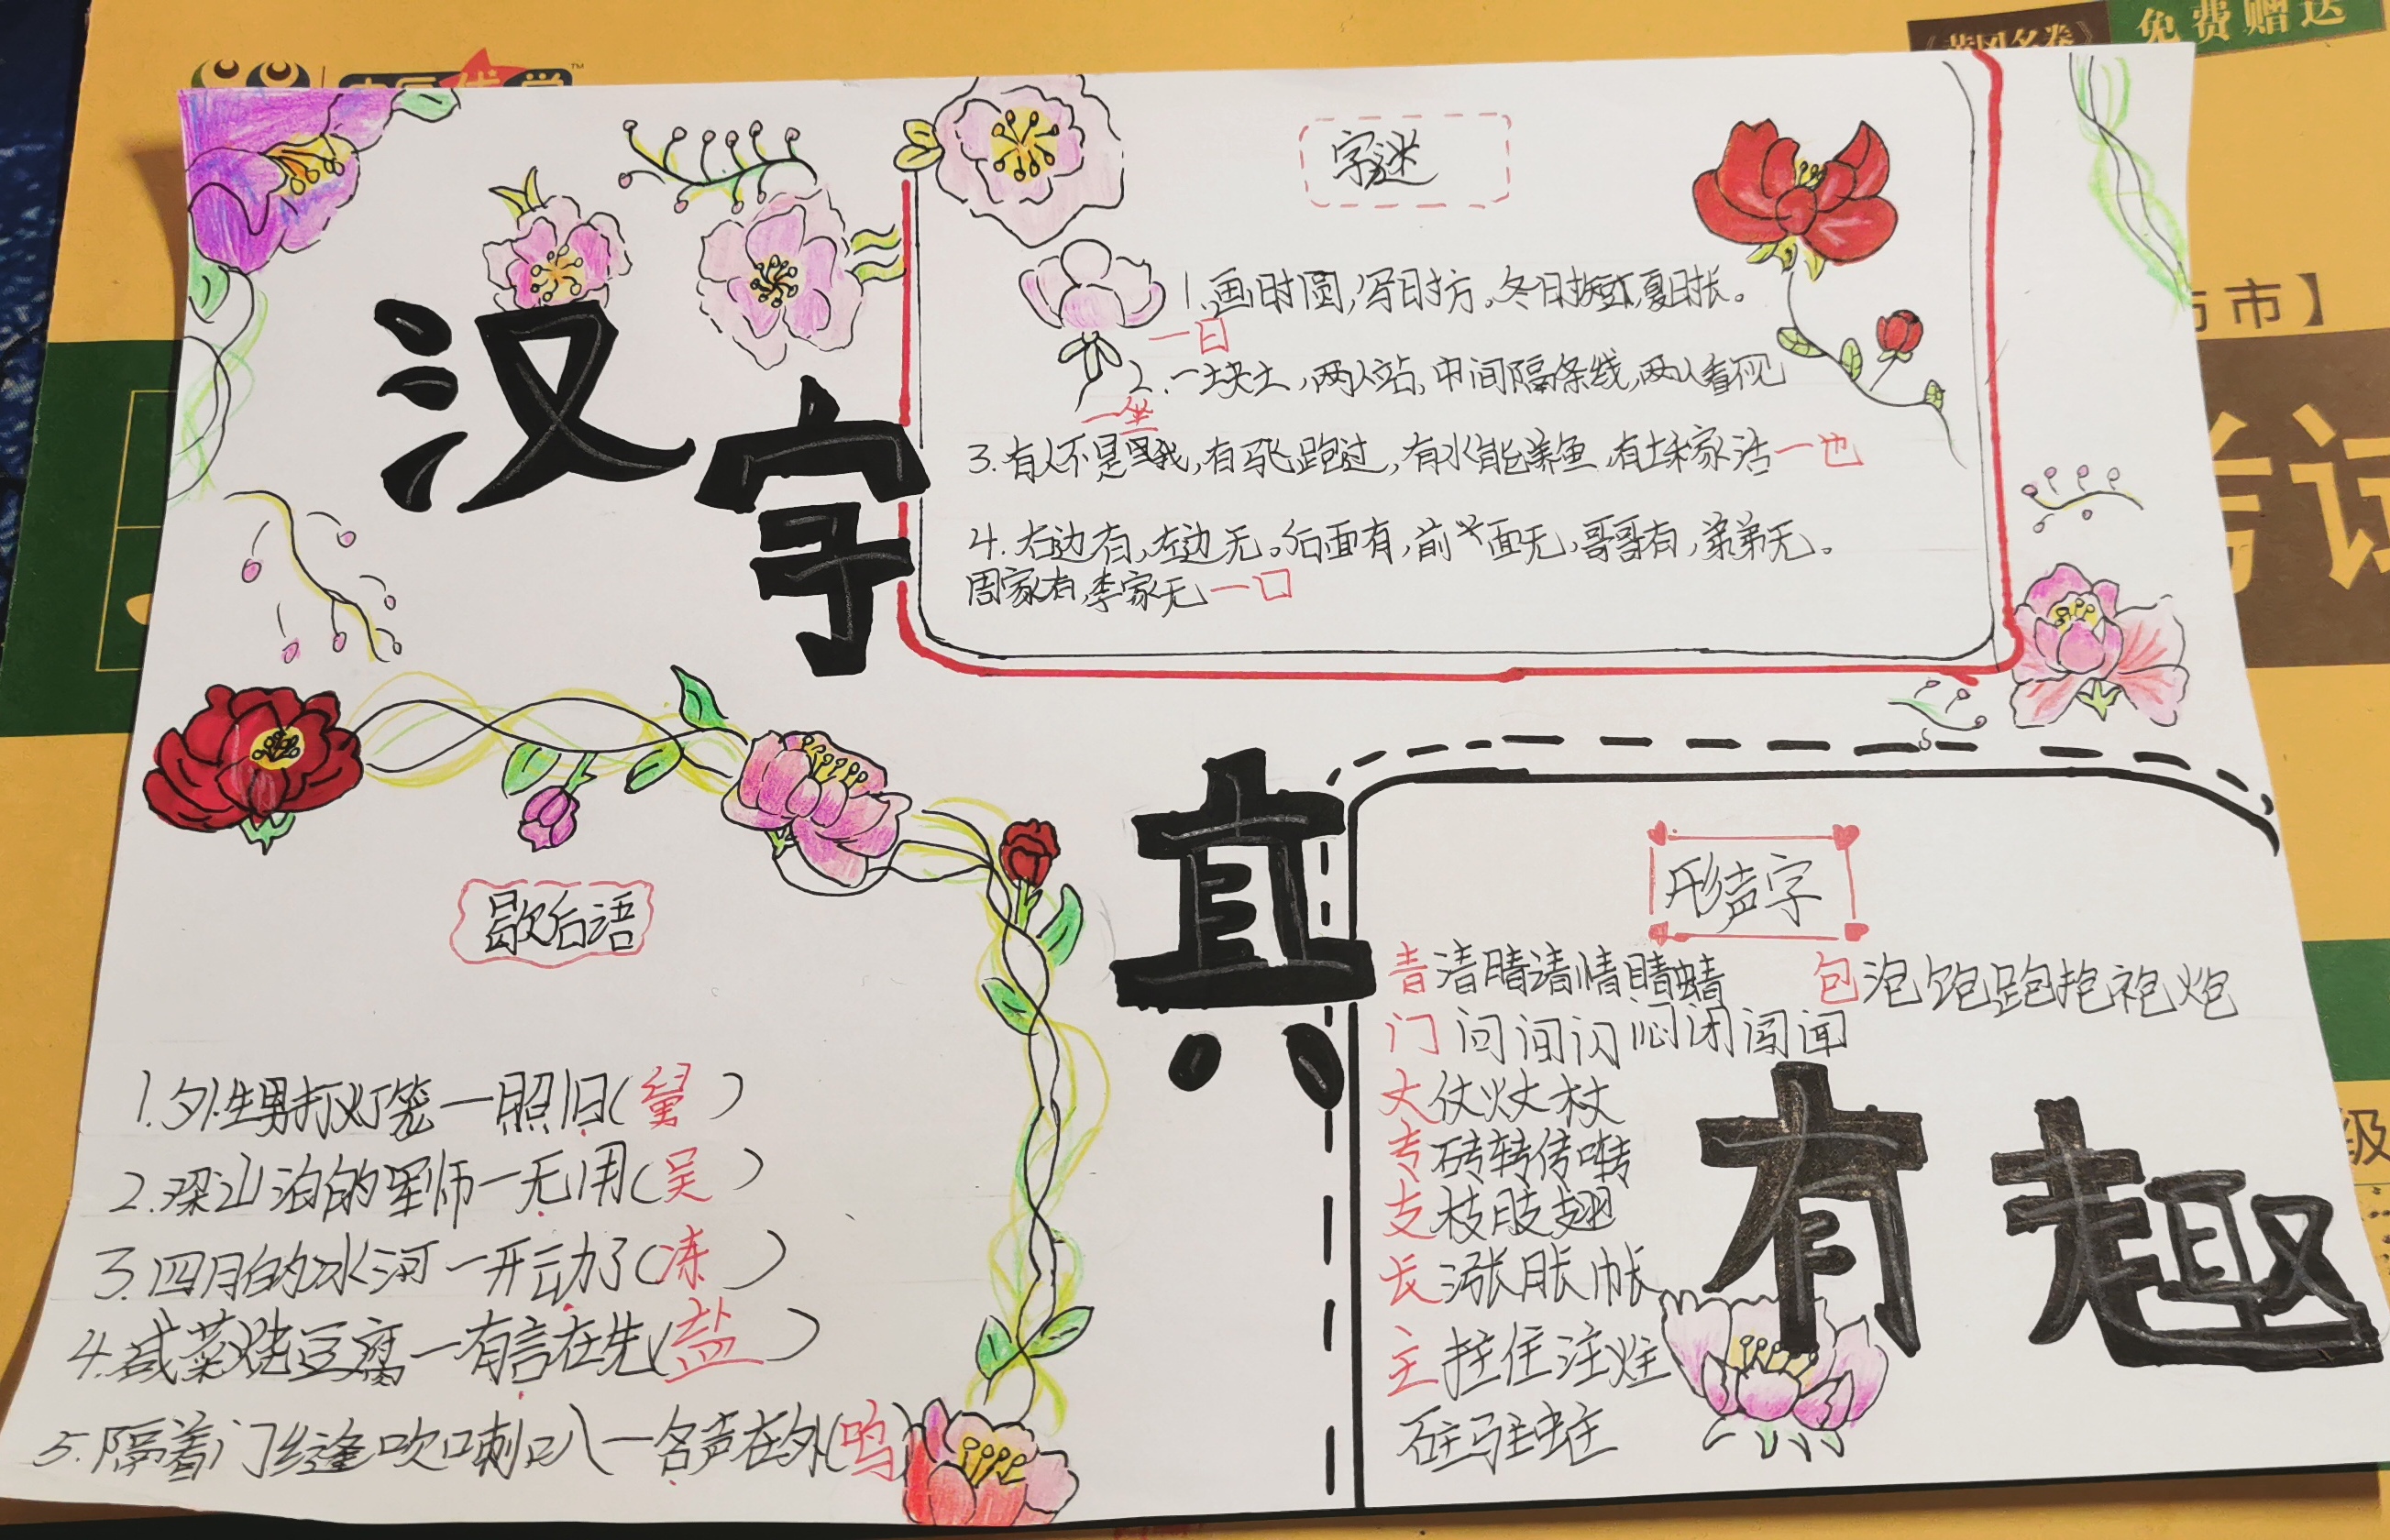 免费赠送
市】
考试
级
汉字
真
有趣
字谜
1.画时圆,写时方。冬时短,夏时长。
一日
2.一块土,两人站,中间隔条线,两人看不见
一坐
3.有人不是我,有马飞跑过,有水能养鱼,有土和家活一也
4.右边有,左边无。后面有,前面无,哥哥有,弟弟无。
周家有,李家无一口
歇后语
1.外甥打灯笼一照旧(舅)
2.梁山泊的军师一无用(吴)
3.四月的冰河一开动了(冻)
4.咸菜烧豆腐一有言在先(盐)
5.隔着门缝吹喇叭一名声在外(鸣)
形声字
青清晴请情睛蜻 包泡饱跑抱袍炮
门 问间闪闷闭闯闻
丈仗杖
专砖转传啭
支枝肢翅
长涨胀帐
主拄住注炷
砫驻蛀